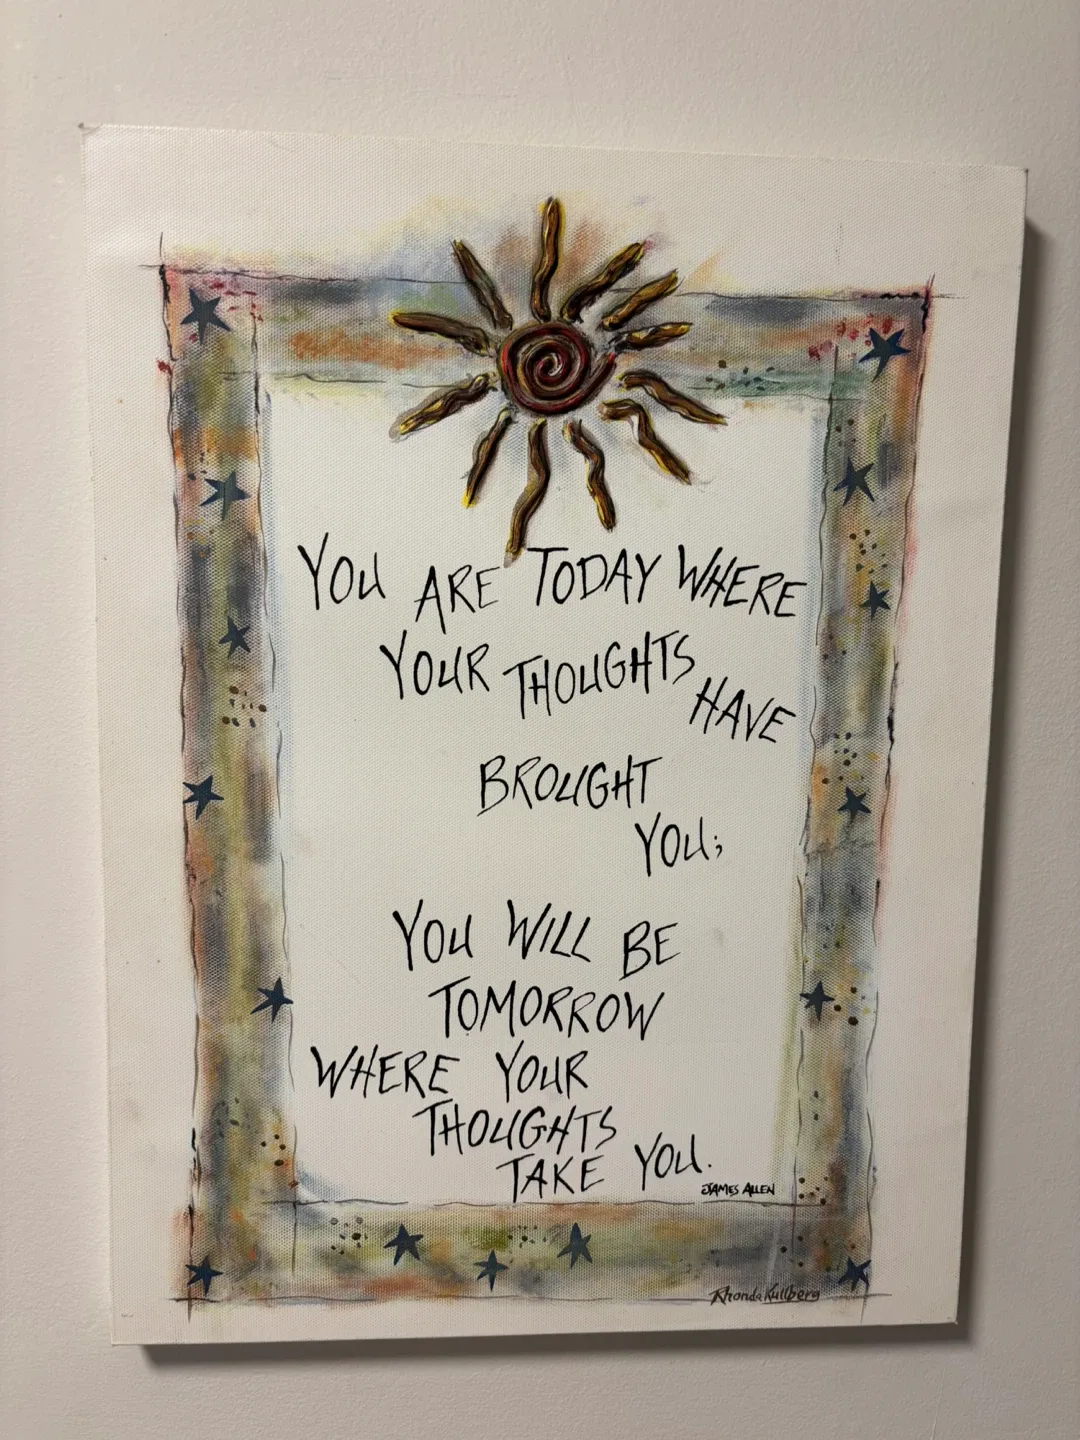 YOU ARE TODAY WHERE
YOUR THOUGHTS HAVE
BROUGHT
YOU;
YOU WILL BE
TOMORROW
WHERE YOUR
THOUGHTS
TAKE YOU.
JAMES ALLEN
Rhonda Kullberg